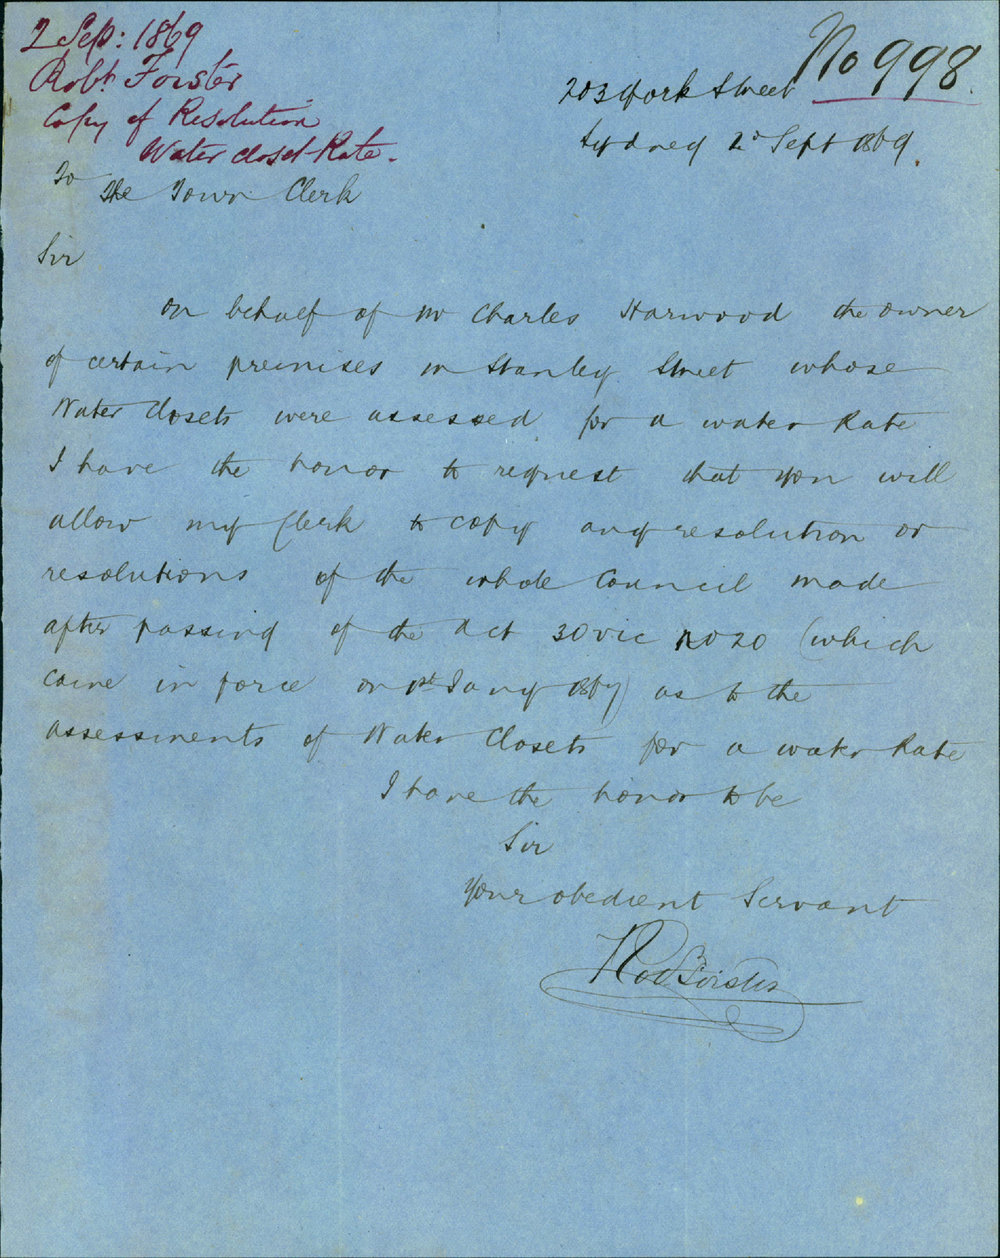 2 Sep: 1869
Robt. Forster
Copy of Resolution
Water closet Rate.
No 998
203 York Street
Sydney 2d Sept 1869.
To The Town Clerk
Sir
On behalf of Mr Charles Harwood the owner
of certain premises in Stanley Street whose
Water Closets were assessed for a water Rate
I have the honor to request that you will
allow my Clerk to copy any resolution or
resolutions of the whole Council made
after passing of the Act 30 Vic No 20 (which
came in force on 1st Jany 1867) as to the
assessments of Water Closets for a water Rate
I have the honor to be
Sir
Your obedient Servant
Robt Forster